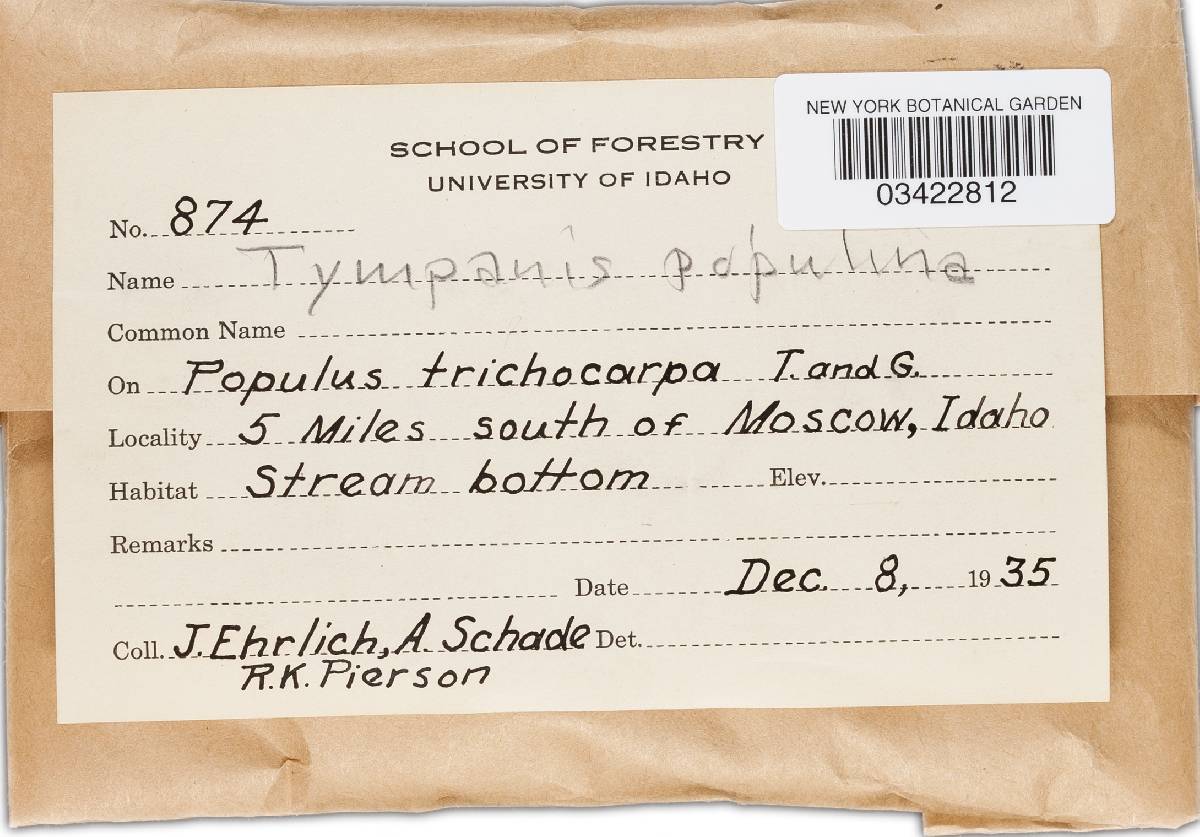 NEW YORK BOTANICAL GARDEN
03422812
SCHOOL OF FORESTRY
UNIVERSITY OF IDAHO
No. 874
Name Tympanis populina
Common Name
On Populus trichocarpa T. and G.
Locality 5 Miles south of Moscow, Idaho
Habitat Stream bottom Elev.
Remarks
Date Dec. 8, 1935
Coll. J. Ehrlich, A. Schade Det.
R.K. Pierson